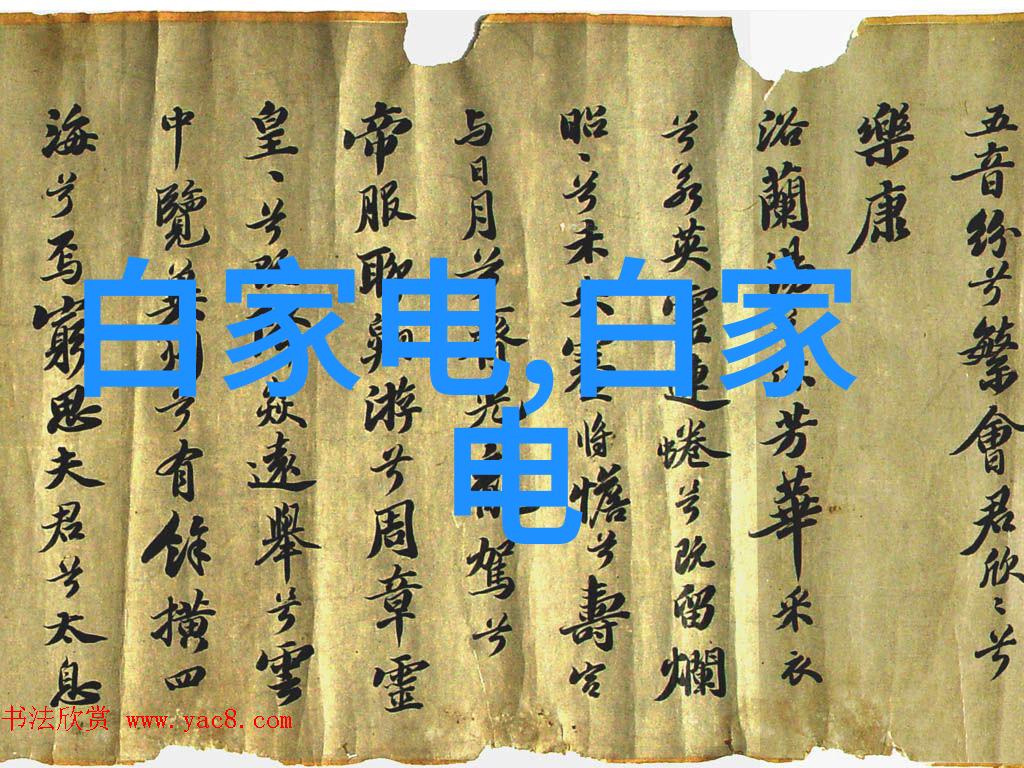 五音纷兮繁會君欣〻兮
樂康
浴蘭湯
芳華采衣
兮若英靈連蜷兮既留爛
昭〻兮未央蹇將憺兮壽宮
与日月兮齊光
駕兮
帝服聊翱游兮周章靈
皇〻兮既
猋遠舉兮雲
中覽冀州兮有餘橫四
海兮焉窮思夫君兮太息
白家电,白家
电
书法欣赏 www.yac8.com